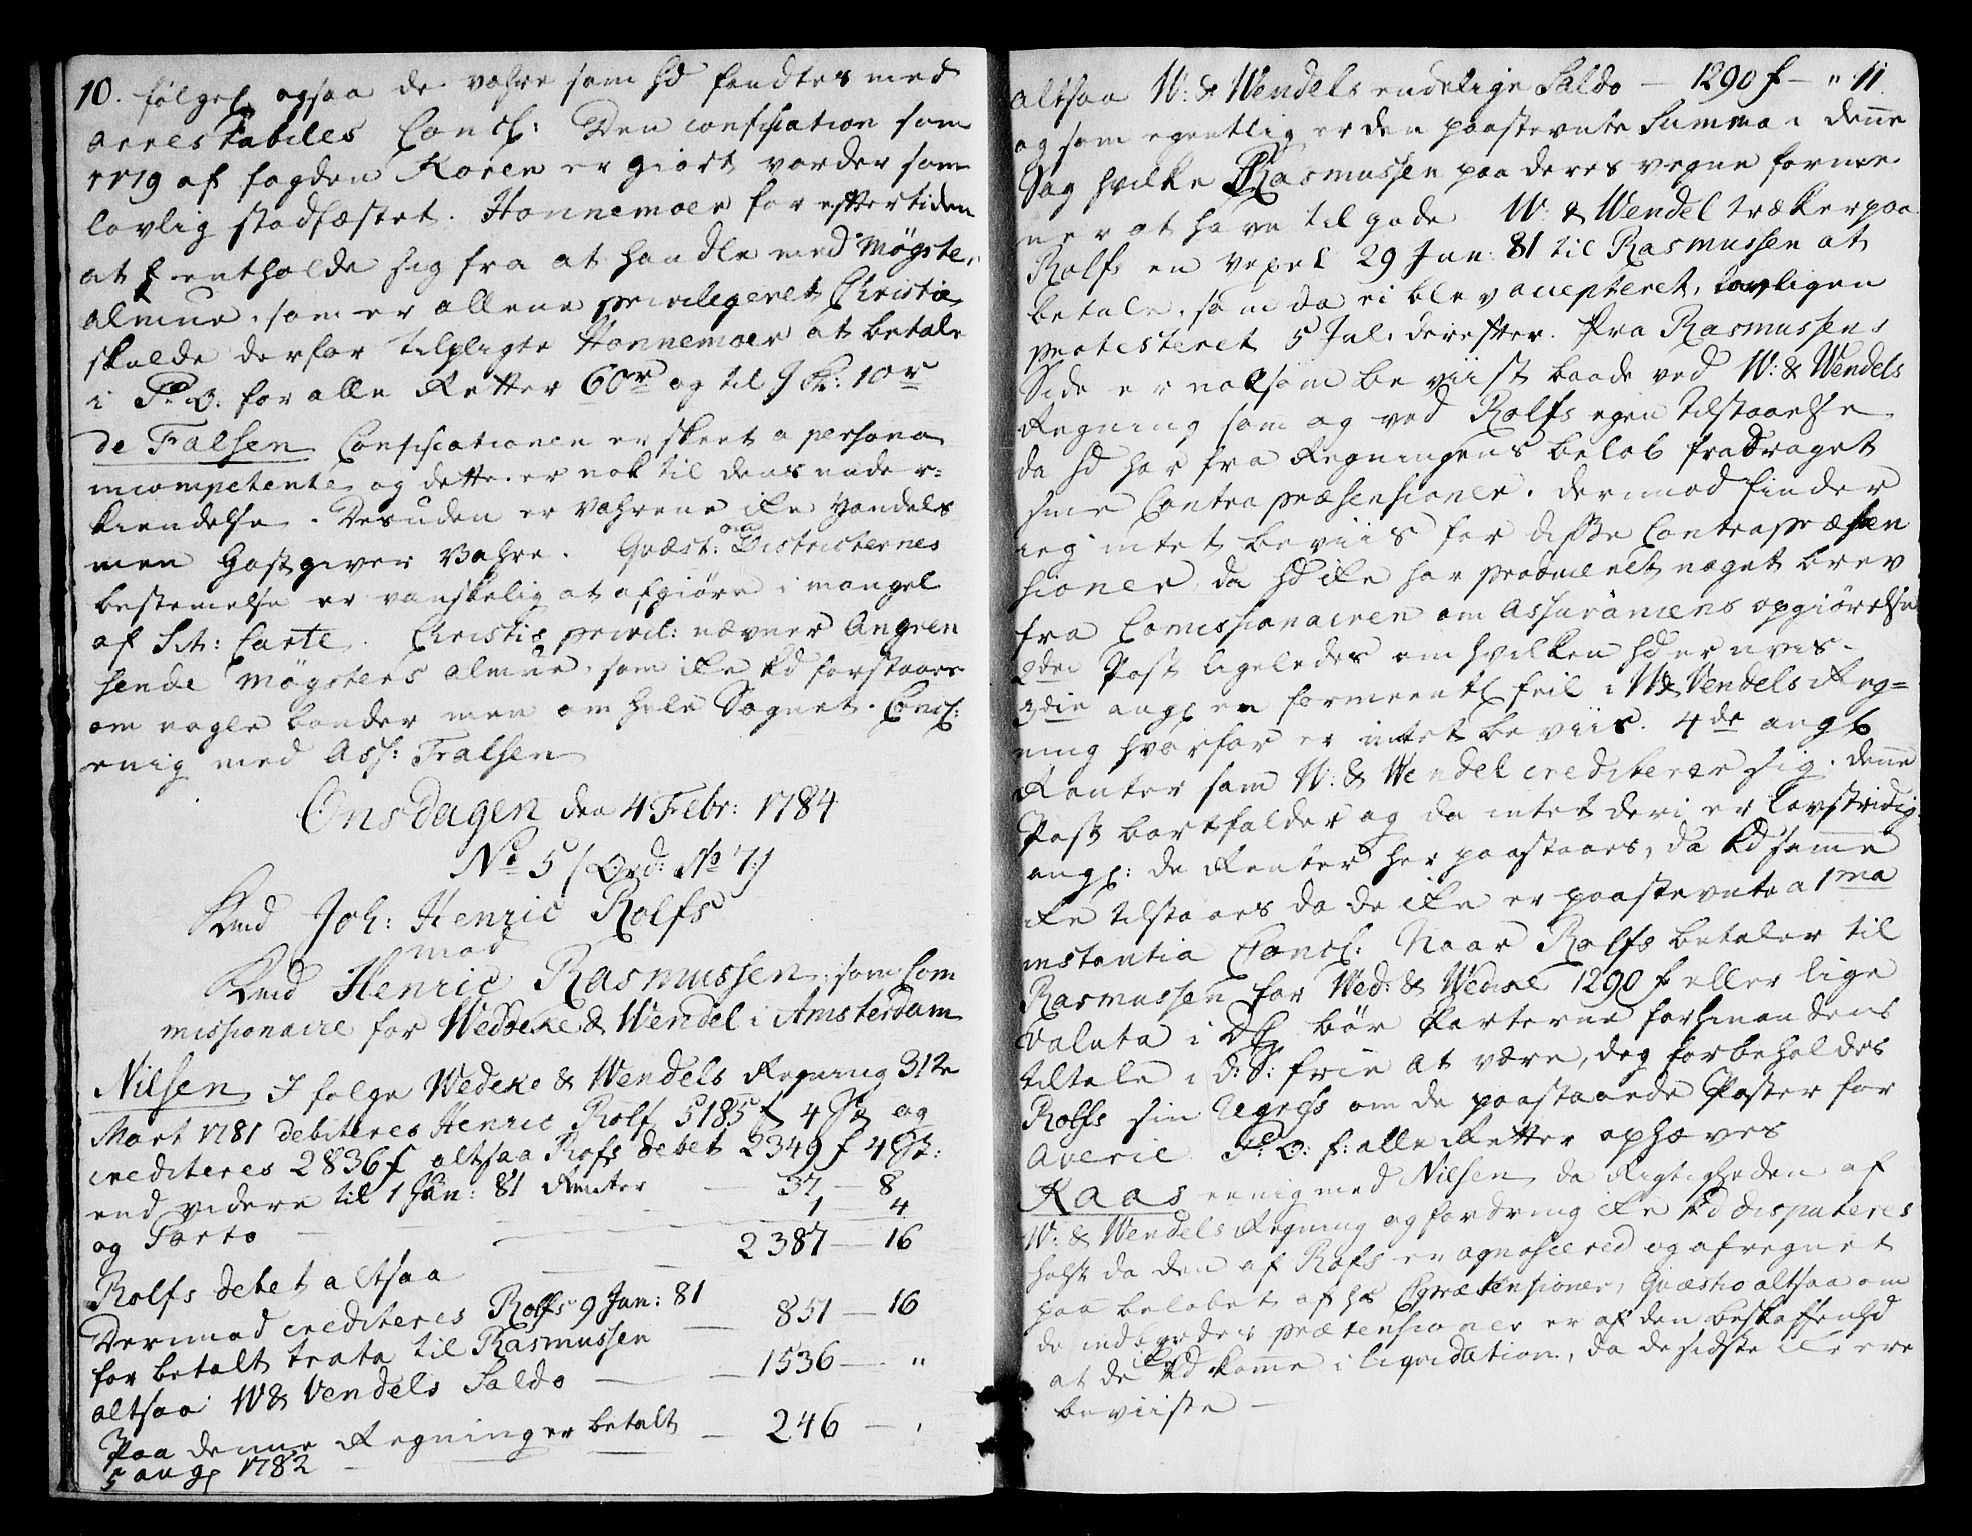 10. følgel. ogsaa de vahre som hd fandtes med
arrestabiles Concl: Den confiscation som
1779 af fogden Koren er giort vorder som
lovlig stadfæstet. Honnemoer for eftertiden
at entholde sig fra at handle med Møgste
almue, som er allene privilegeret Christie
skulde derfor tilpligte Honnemoer at betale
i P. O. for alle Retter 60 r og til J K: 10 r
de Falsen Confiscationen er skeet a persona
incompetente og dette er nok til dens under-
kiendelse. Desuden er Vahrene ike Handels
men Gastgiver Vahre. Quæst: om Districternes
bestemelse er vanskelig at afgiøre i mangel
af Sit: Carte. Christies privil: nævner Angren
sende Møgsters almue, som ike kd forstaaes
om nogle bønder men om hele Sognet. Concl:
enig med Ass: Falsen
Onsdagen den 4 Febr: 1784
No 5 /Ord: No 7/
Kmd Joh: Henric Rolfs
mod
Kmd Henric Rasmussen, som Com
missionaire for Wedeke & Wendel i Amsterdam
Nilsen I følge Wedeke & Wendels Regning 31te
Mart 1781 debiteres Henric Rolf 5185 f 4 St og
crediteres 2836 f altsaa Rofs debet 2349 f 4 St:
end videre til 1 Jan: 81 Renter — 37 — 8
og Porto — 1 — 4
2387 — 16
Rolfs debet altsaa
Dermod crediteres Rolfs 9 Jan: 81
for betalt trata til Rasmussen — 851 — 16
altsaa W & Vendels Saldo — 1536 — "
Paa denne Regning er betalt — 246 — "
5 aug 1782
altsaa W: & Wendels endelige Saldo — 1290 f — " 11.
og som egentlig er den paastevnte Summa i denne
Sag hvilke Rasmussen paa deres vegne forme
ner at have til gode W: & Wendel trækker paa
Rolfs en vexel 29 Jun: 81 til Rasmussen at
betale, som da ei blev accepteret, lovligen
protesteret 5 Jul: derefter. Fra Rasmussens
Side er noksom beviist baade ved W: & Wendels
Regning som og ved Rolfs egen tilstaaelse
da hd har fra Regningens beløb fradraget
sine Contra præsensioner. Dermod finder
ieg intet beviis for disse Contrapræsen
sioner da hd ike har produceret noget brev
fra Comissionairen om Assurancens opgiørelse
2den Post ligeledes om hvilken hd er uvis.
3die angl en formeentl feil i W & Vendels Reg=
ning hvorfor er intet beviis. 4de angl
Renter som W: & Wendel crediterer sig. denne
Post bortfalder og da intet deri er lovstridig.
angl: de Renter her paastaaes, da kd samme
ike tilstaaes da de ike er paastevnte a 1ma
instantia Concl: Naar Rolfs betaler til
Rasmussen for Wed: & Wedeke 1290 f eller lige
Valuta i D bør Parterne for hinandens
tiltale i d: S: frie at være, dog forbeholdes
Rolfs sin Regress om de paastaaede Poster for
Averie P: O: f: alle Retter ophæves
Kaas eenig med Nilsen, da Rigtigheden af
W: & Wendels Regning og fordring ike kd disputeres
helst da den af Rofs er agnosceret og afregnet
paa beløbet af hs prætensioner, Quæstio altsaa om
de indbyrdes prætensioner er af den beskaffenhd
at de ike kd komme i liquidation, da de sidste ike ere
beviiste —